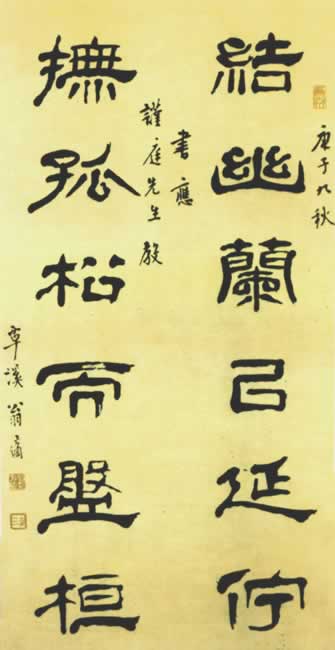 庚子九秋
結幽蘭已延佇
書應
謹庭先生教
撫孤松而盤桓
覃溪翁方綱